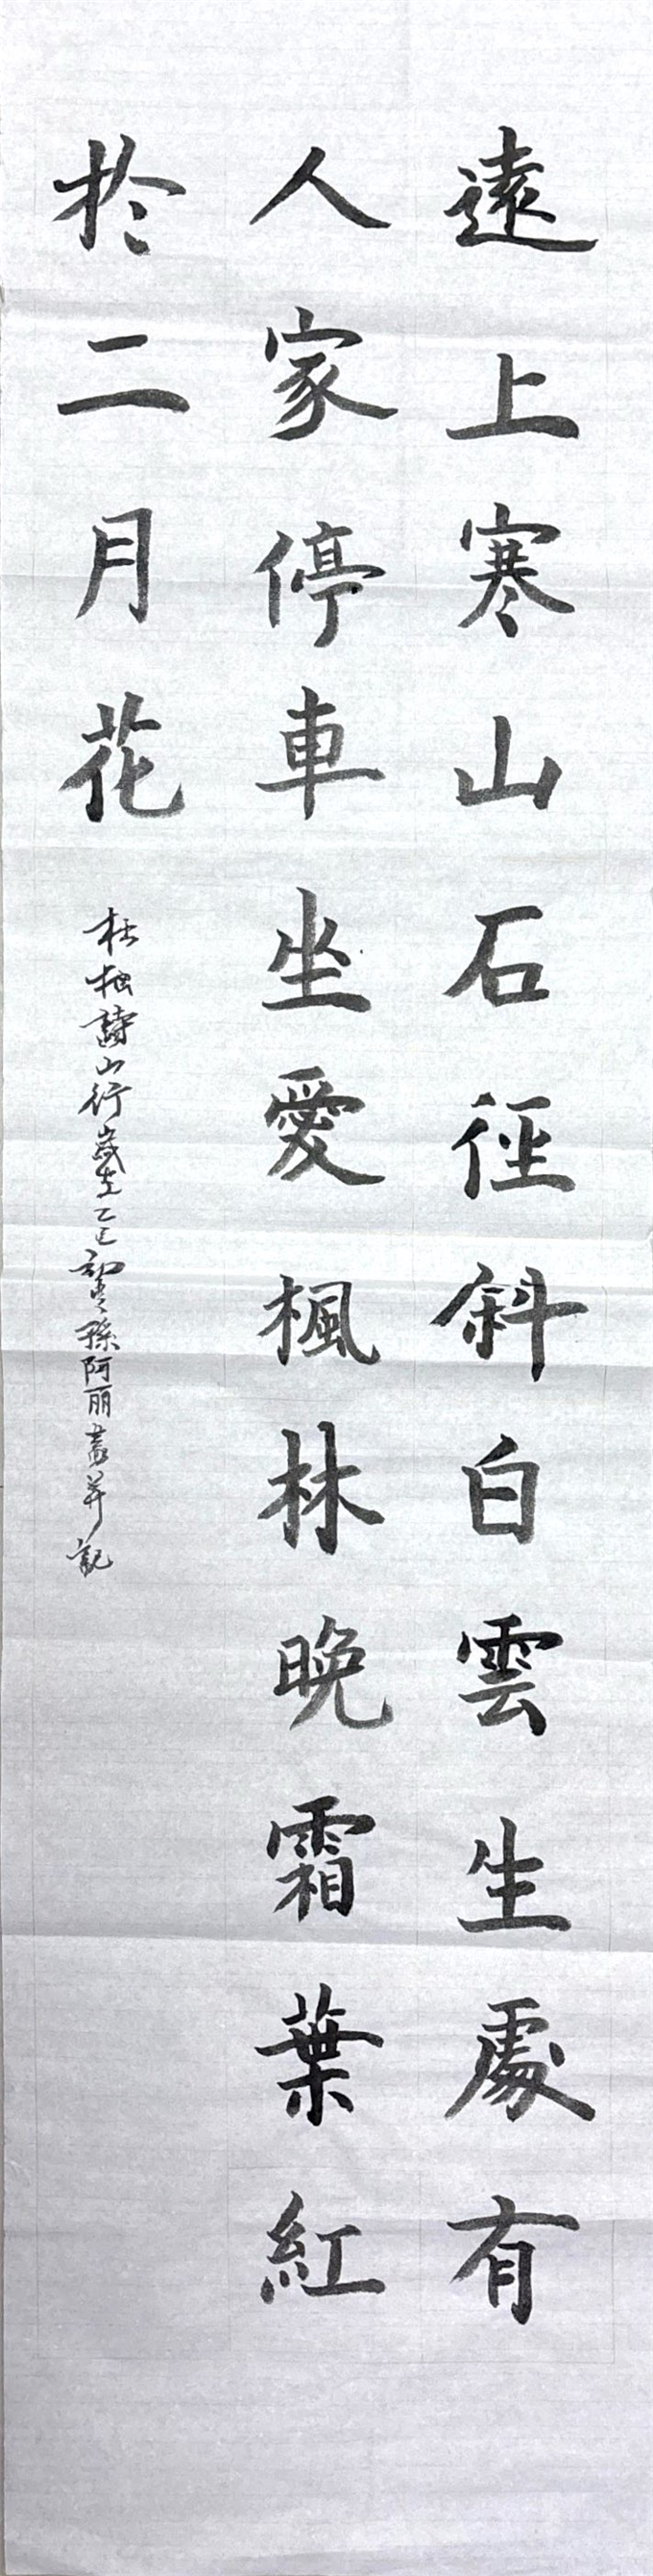 遠上寒山石径斜白雲生處有
人家停車坐愛楓林晚霜葉紅
於二月花
杜牧詩山行歲在乙巳初冬孫阿丽書并記